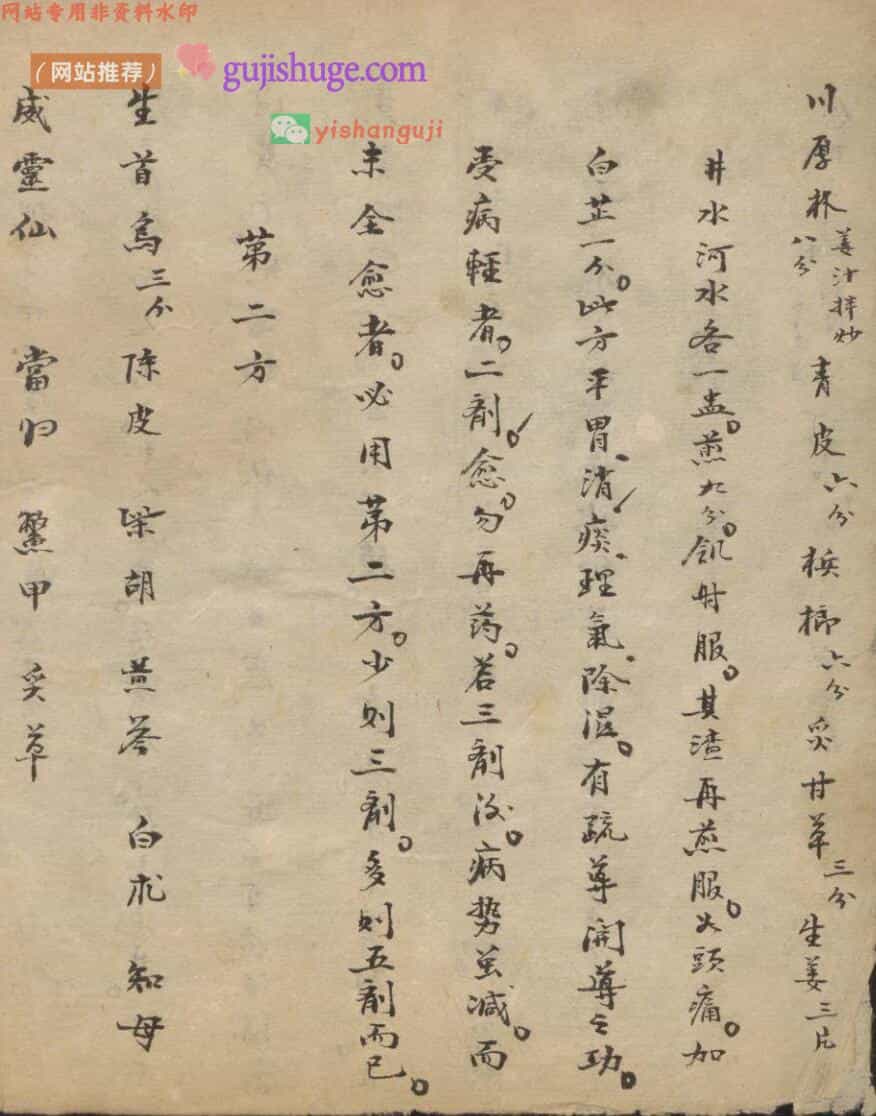 网站专用非资料水印
（网站推荐） gujishuge.com
yishanguji
川厚朴八分姜汁拌炒 青皮六分 梹榔六分 炙甘草三分 生姜三片
井水河水各一盅。煎九分。飢时服。其渣再煎服。如頭痛。加
白芷一分。此方平胃消痰理氣除湿。有疏導開導之功。
受病輕者。二劑。愈。勿再药。若三劑後。病势虽减。而
未全愈者。必用第二方。少则三劑。多则五劑而已。
第二方
生首烏三分 陈皮 柴胡 黄芩 白朮 知母
威靈仙 當归 鱉甲 炙草